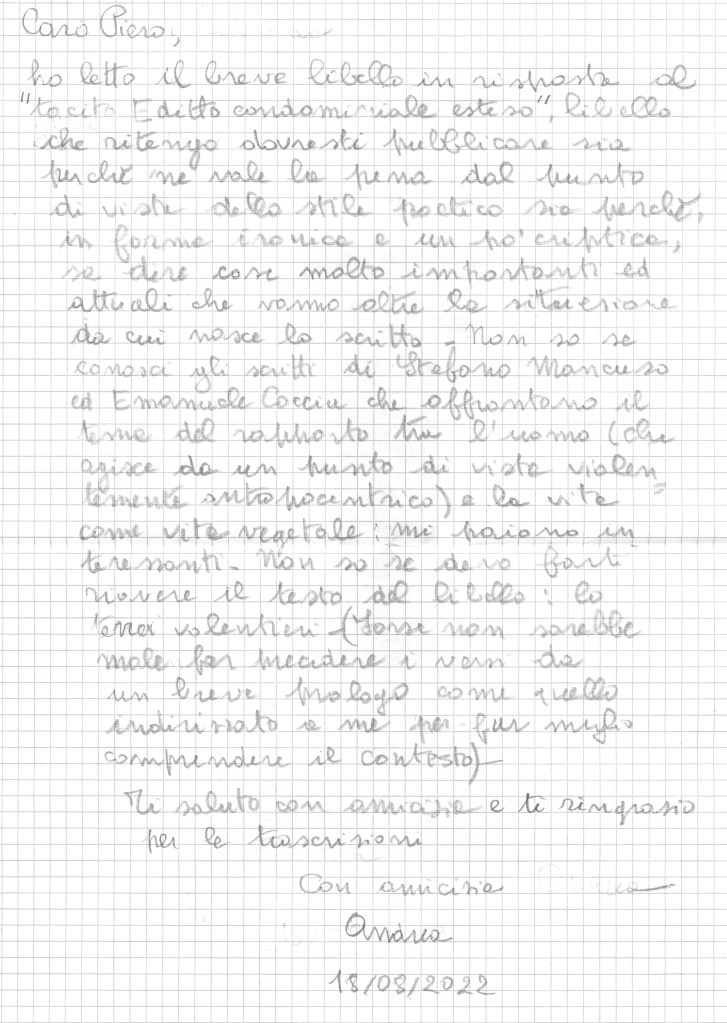 Caro Piero,
ho letto il breve libello in risposta al
"tacito Editto condominiale esteso", libello
che ritengo dovresti pubblicare sia
perché ne vale la pena dal punto
di vista dello stile poetico sia perché,
in forma ironica e un po' criptica,
sa dire cose molto importanti ed
attuali che vanno oltre la situazione
da cui nasce lo scritto - Non so se
conosci gli scritti di Stefano Mancuso
ed Emanuele Coccia che affrontano il
tema del rapporto tra l'uomo (che
agisce da un punto di vista violen=
temente antropocentrico) e la vita
come vita vegetale: mi paiono in
teressanti - Non so se devo farti
riavere il testo del libello: lo
terrei volentieri - (Forse non sarebbe
male far precedere i versi da
un breve prologo come quello
indirizzato a me per far meglio
comprendere il contesto) -
Ti saluto con amicizia e ti ringrazio
per le trascrizioni
Con amicizia
Andrea
18/08/2022